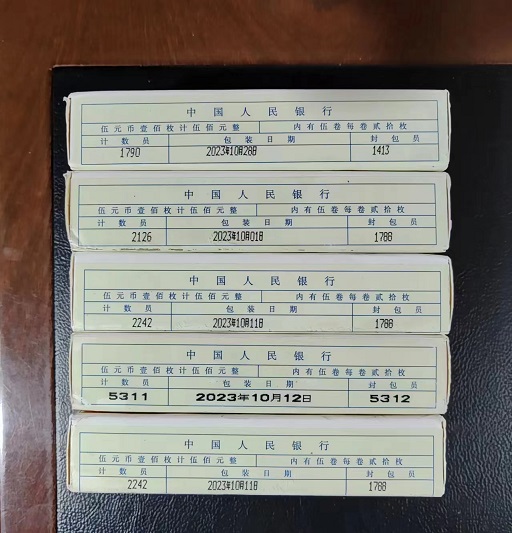 中国人民银行
伍元币壹佰枚计伍佰元整 内有伍卷每卷贰拾枚
计数员 包装日期 封包员
1790 2023年10月28日 1413
中国人民银行
伍元币壹佰枚计伍佰元整 内有伍卷每卷贰拾枚
计数员 包装日期 封包员
2126 2023年10月01日 1788
中国人民银行
伍元币壹佰枚计伍佰元整 内有伍卷每卷贰拾枚
计数员 包装日期 封包员
2242 2023年10月11日 1788
中国人民银行
伍元币壹佰枚计伍佰元整 内有伍卷每卷贰拾枚
计数员 包装日期 封包员
5311 2023年10月12日 5312
中国人民银行
伍元币壹佰枚计伍佰元整 内有伍卷每卷贰拾枚
计数员 包装日期 封包员
2242 2023年10月11日 1788